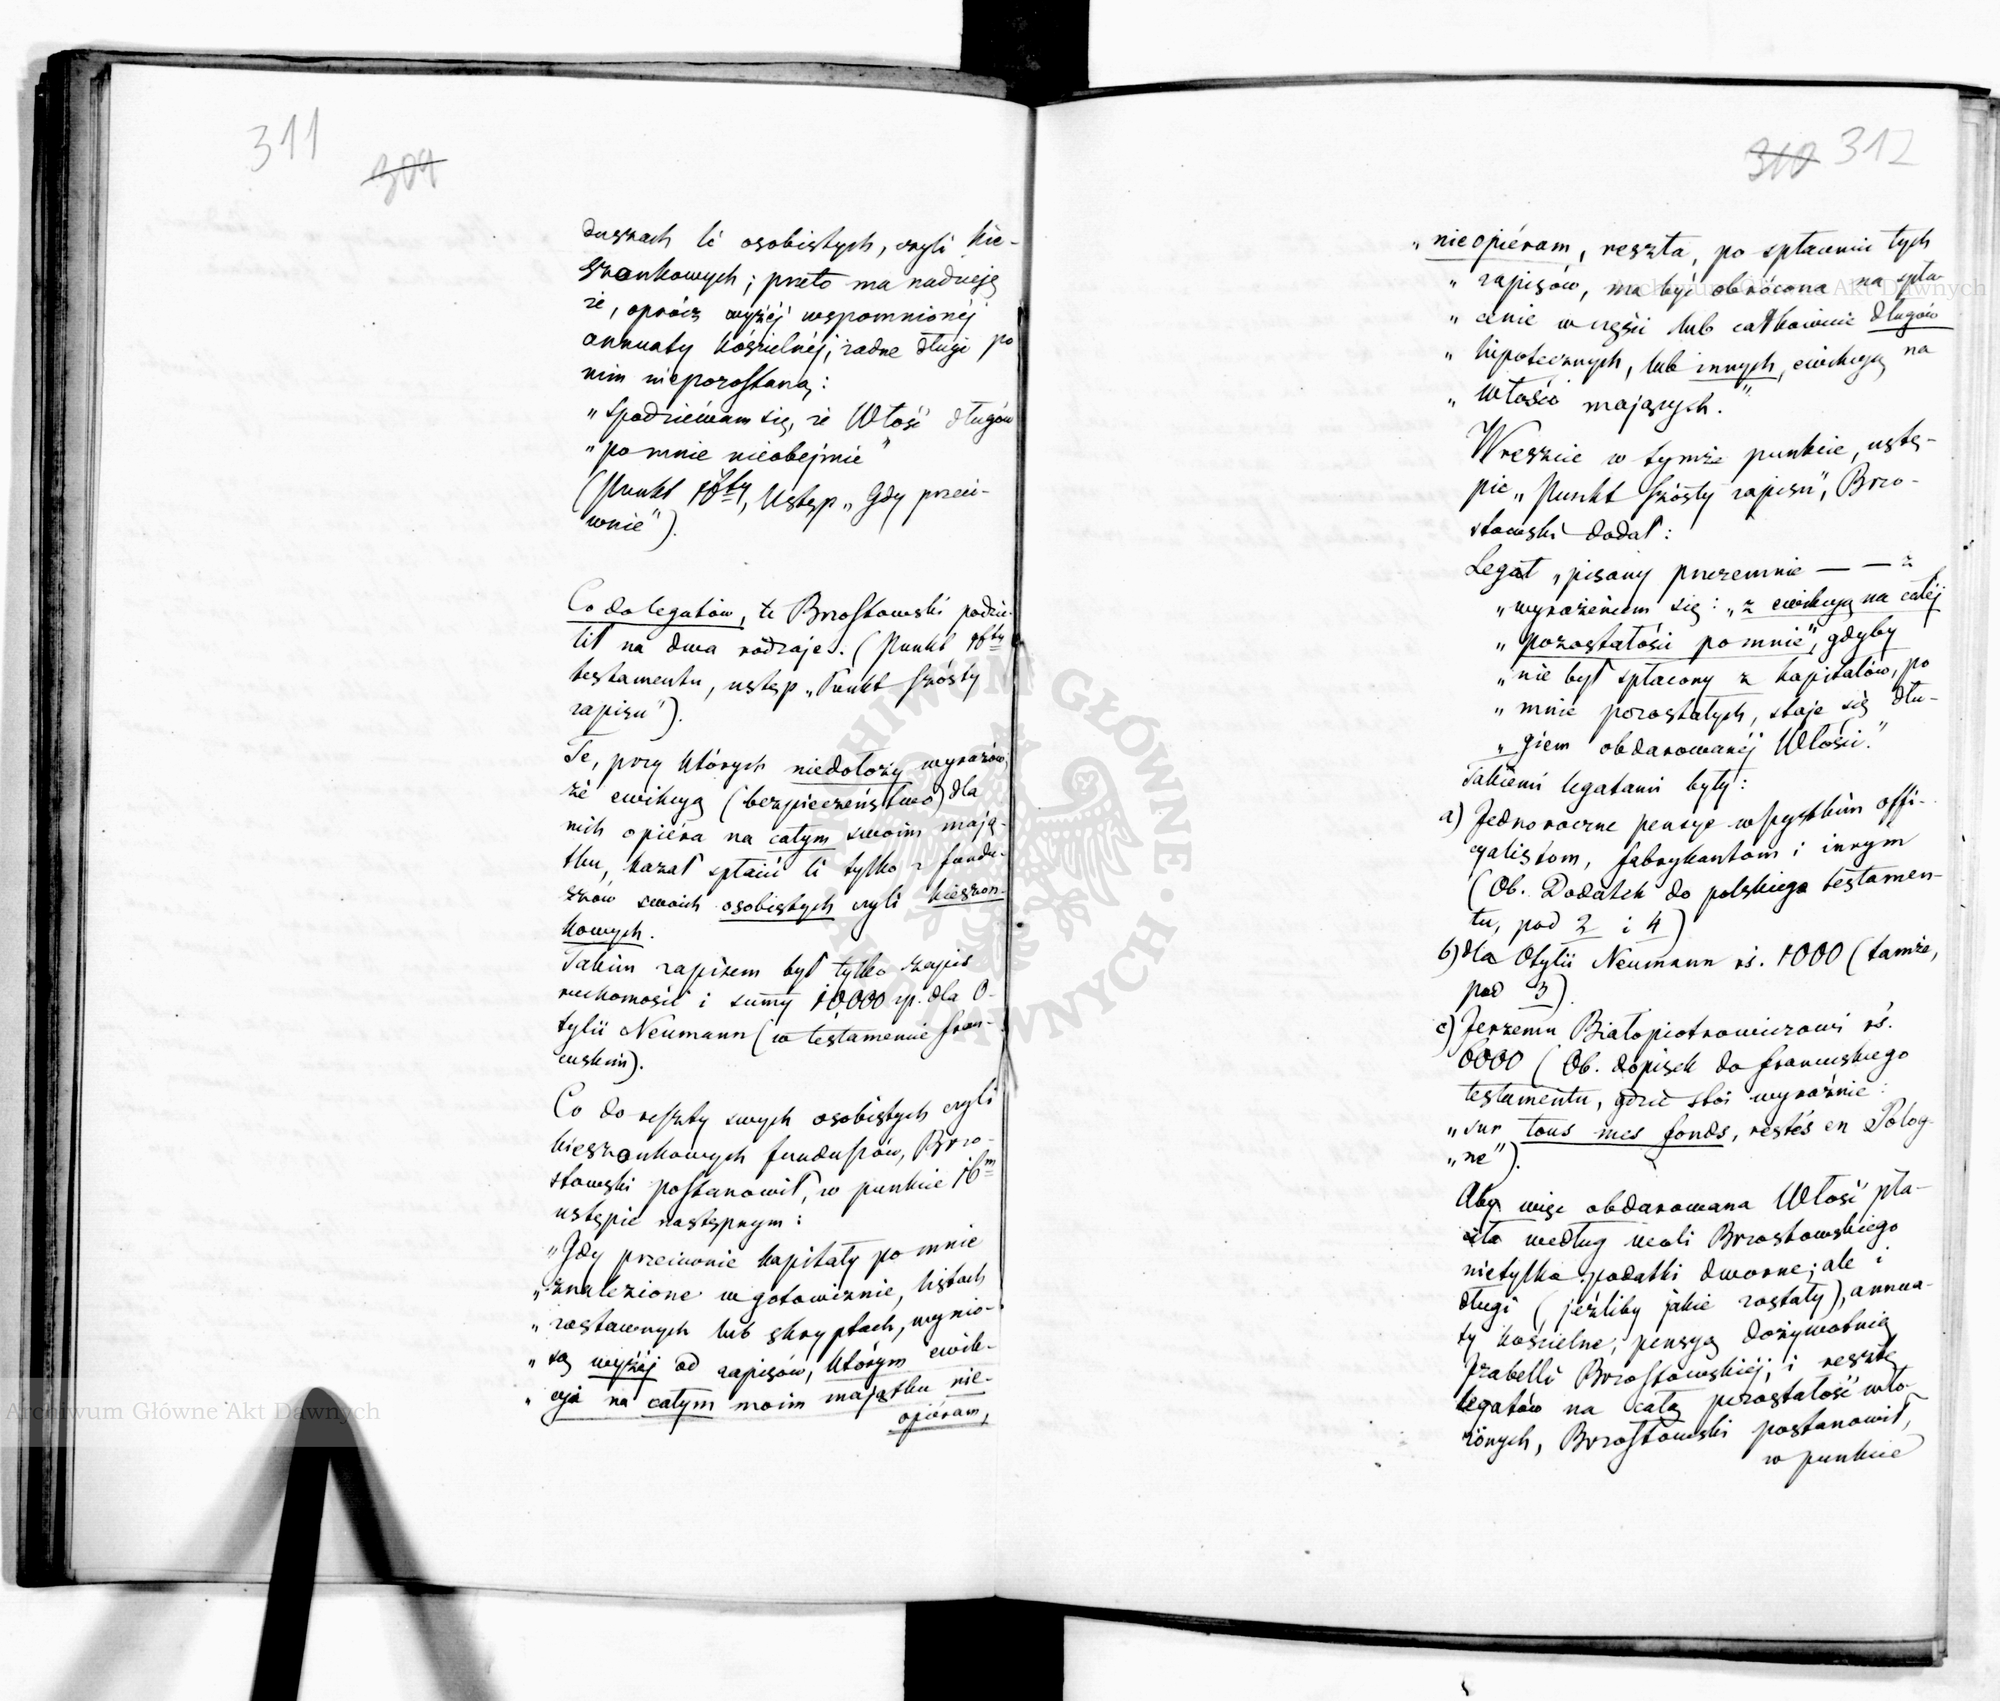 311
309
duszach li osobistych, czyli kie-
szonkowych; przeto ma nadzieję
że, oprócz wyżéj wspomnionéj
annuaty kościelnéj, żadne długi po
nim niepozostaną:
„Spodziéwam się, że Włość długów
„po mnie nieobejmie"
(Punkt 16ty, Ustęp „Gdy przeci-
wnie").
Co do legatów, te Brzostowski podzie-
lił na dwa rodzaje. (Punkt 16ty
testamentu, ustęp „Punkt szósty
zapisu").
Te, przy których niedołoży wyrazów,
że ewikcyą (bezpieczeństwo) dla
nich opiéra na całym swoim mają-
tku, kazał spłacić li tylko z fundu-
szów swoich osobistych czyli kieszon-
kowych.
Takim zapisem był tylko zapis
ruchomości i summy 10,000 zp. dla O-
tylii Neumann (w testamencie fran-
cuskim).
Co do reszty swych osobistych czyli
kieszonkowych funduszów, Brzo-
stowski postanowił, w punkcie 16m
ustępie następnym:
„Gdy przeciwnie kapitały po mnie
„znalezione w gotowiznie, listach
„zastawnych lub skryptach, wynio-
„są wyżéj od zapisów, którym ewik-
„cyi na całym moim majątku nie-
opiéram,
310 312
„nieopiéram, reszta, po spłaceniu tych
„zapisów, ma być obrócona na spła-
„cenie w części lub całkowicie długów
„hipotecznych, lub innych, ewikcyą na
„Włości mających."
Wreszcie w tymże punkcie, ustę-
pie „Punkt szósty zapisu", Brzo-
stowski dodał:
Legat „pisany przezemnie — — z
„wyrażeniem się: „z ewikcyą na całéj
„pozostałości po mnie", gdyby
„nie był spłacony z kapitałów, po
„mnie pozostałych, staje się dłu-
„giem obdarowanéj Włości."
Takiemi legatami były:
a) Jednoroczne pensye wszystkim offi-
cyalistom, fabrykantom i innym
(Ob. Dodatek do polskiego testamen-
tu, pod 2 i 4)
b) dla Otylii Neumann rś. 1000 (tamże,
pod 3).
c) Jerzemu Białopiotrowiczowi rś.
6000 (Ob. dopisek do francuskiego
testamentu, gdzie stoi wyraźnie:
„sur tous mes fonds, restés en Polog-
„ne").
Aby więc obdarowana Włość pła-
ciła według woli Brzostowskiego
nietylko podatki dworne; ale i
długi (jeźliby jakie zostały), annua-
ty kościelne, pensyą dożywotnią
Izabelli Brzostowskiéj, i resztę
legatów na całą pozostałość wło-
żonych, Brzostowski postanowił,
w punkcie
ARCHIWUM GŁÓWNE AKT DAWNYCH
Archiwum Główne Akt Dawnych
Archiwum Główne Akt Dawnych